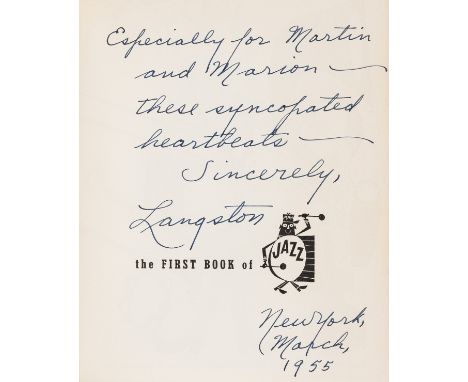 Especially for Martin
and Marion —
these syncopated
heartbeats —
Sincerely,
Langston
the FIRST BOOK of JAZZ
New York,
March,
1955